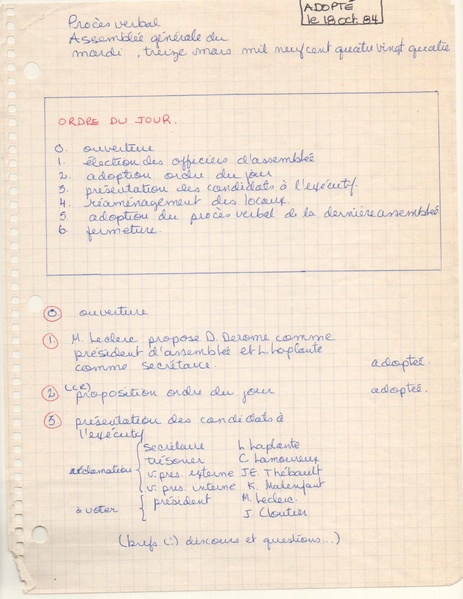 ADOPTÉ
le 18 oct 84
Procès verbal
Assemblée générale du
mardi, treize mars mil neuf cent quatre vingt quatre
ORDRE DU JOUR.
0. ouverture
1. élection des officiers d'assemblée
2. adoption ordre du jour
3. présentation des candidats à l'exécutif.
4. réaménagement des locaux.
5. adoption du procès verbal de la dernière assemblée
6. fermeture.
0 ouverture
1 M. Leclerc propose D. Derome comme
président d'assemblée et L. Laplante
comme secrétaire. adoptée.
2 proposition ordre du jour adoptée.
3 présentation des candidats à
l'exécutif
secrétaire L. Laplante
trésorier C. Lamoureux
acclamation v. pres. externe J.E. Thébault
v. pres. interne K. Malenfant
à voter président M. Leclerc.
J. Cloutier
(brefs (!) discours et questions...)